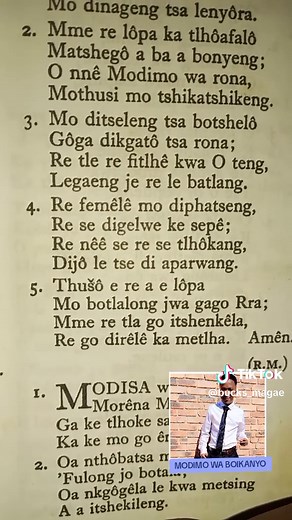 Mo dinageng tsa lenyôra.
2. Mme re lôpa ka tlhôafalô
Matshegô a ba a bonyeng;
O nnê Modimo wa rona,
Mothusi mo tshikatshikeng.
3. Mo ditseleng tsa botshelô
Gôga dikgatô tsa rona;
Re tle re fitlhê kwa O teng,
Legaeng je re le batlang.
4. Re femêlê mo diphatseng,
Re se digelwe ke sepê;
Re nêê se re se tlhôkang,
Dijô le tse di aparwang.
5. Thušô e re a e lôpa
Mo botlalong jwa gago Rra;
Mme re tla go itshenkêla,
Re go dirêlê ka metlha. Amên.
(R.M.)
1. MODISA w
Morêna M
Ga ke tlhoke sa
Ka ke mo go êr
2. Oa nthôbatsa m
'Fulong jo bota
Oa nkgôgêla le kwa metsing
A a itshekileng.
TikTok
@bucks_magae
MODIMO WA BOIKANYO